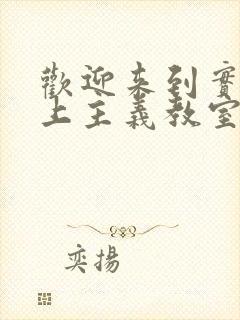 歡迎來到實
上主義教室
奕揚